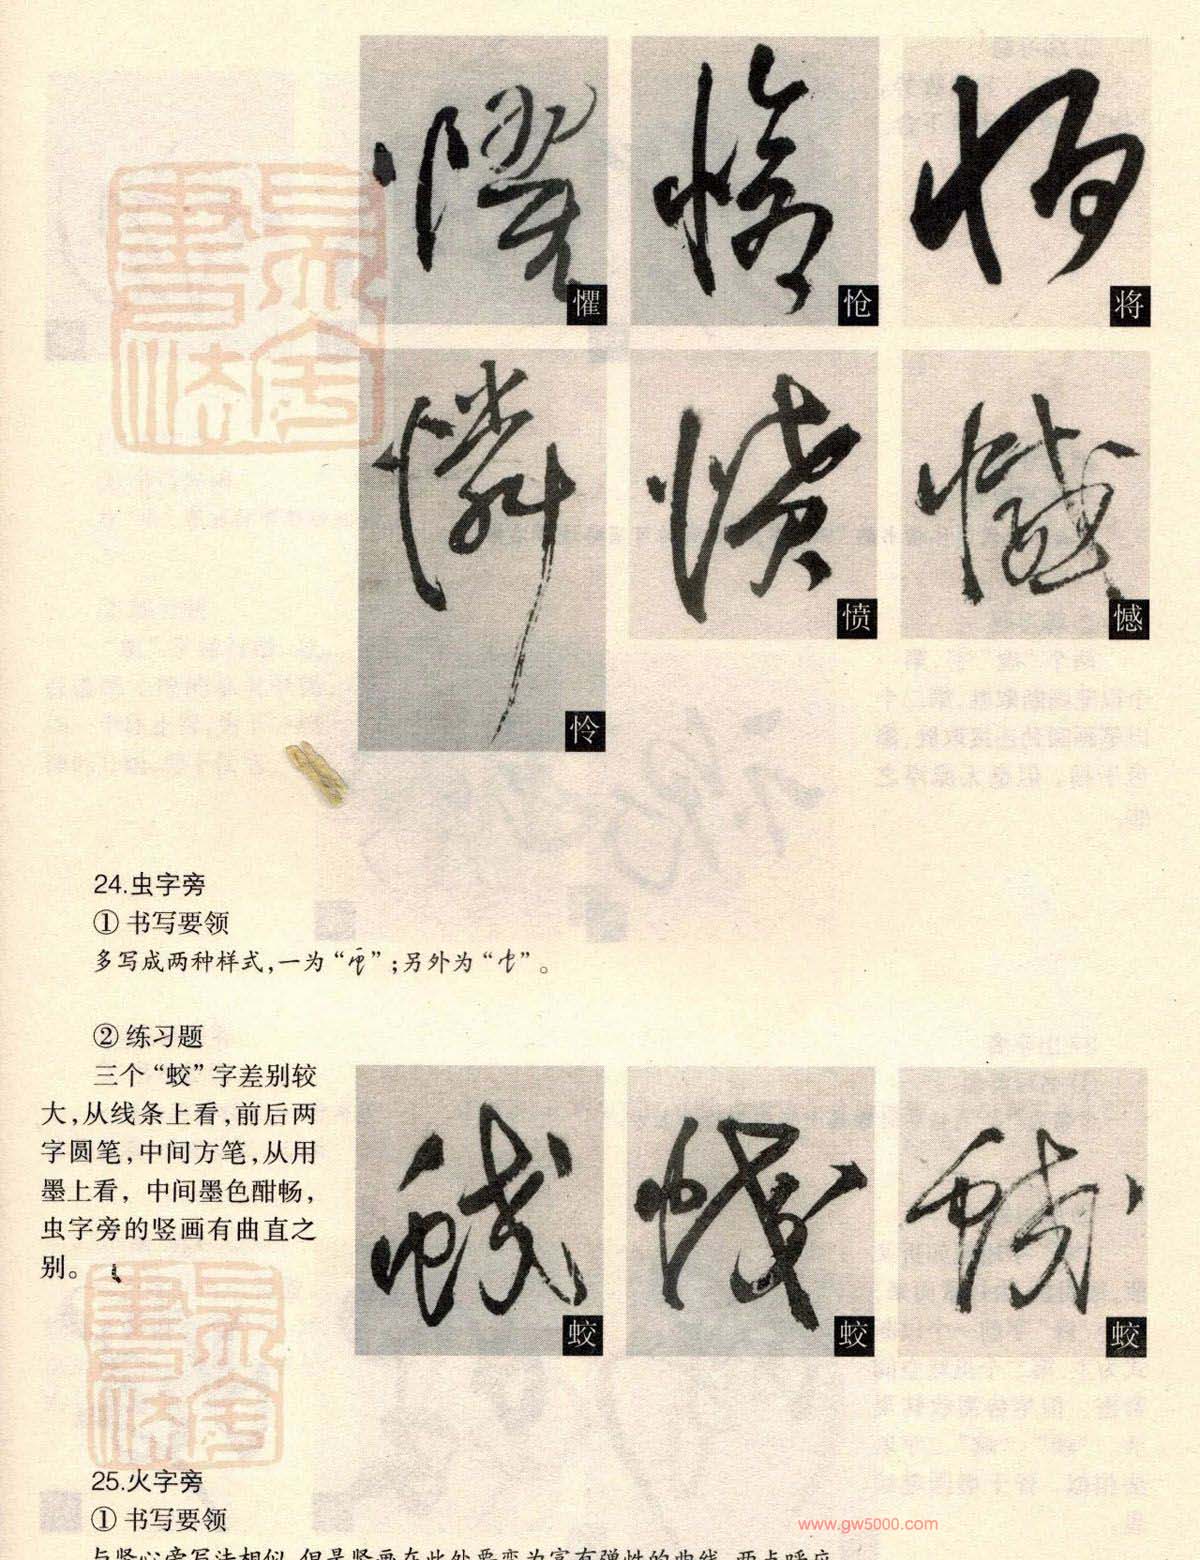 懼
怆
将
怜
愤
憾
24.虫字旁
① 书写要领
多写成两种样式,一为“ ”;另外为“ ”。
② 练习题
三个“蛟”字差别较
大,从线条上看,前后两
字圆笔,中间方笔,从用
墨上看,中间墨色酣畅,
虫字旁的竖画有曲直之
别。
蛟
蛟
蛟
25.火字旁
① 书写要领
www.gw5000.com
与竖心旁写法相似,但是竖画在此处要变为富有弹性的曲线,两点呼应